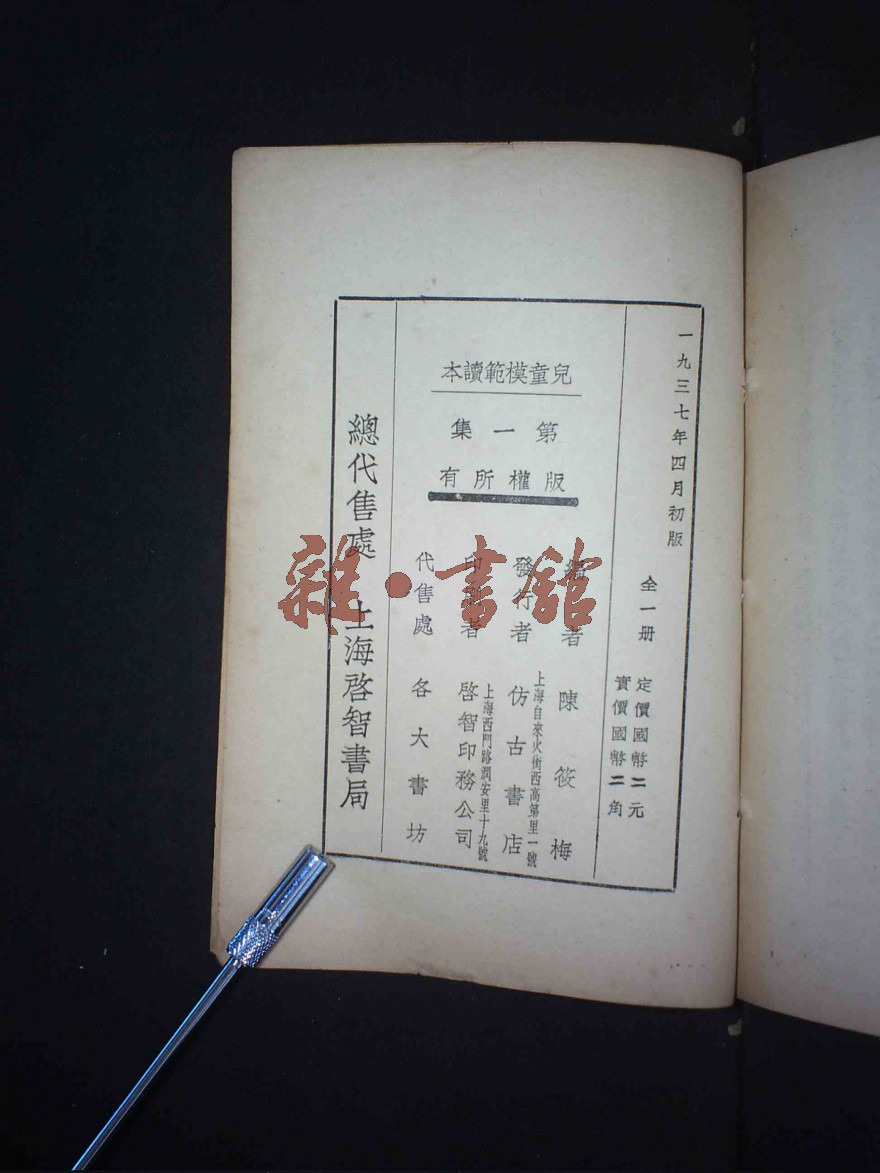 一九三七年四月初版
全一册
定價國幣二元
實價國幣二角
兒童模範讀本
第一集
版權所有
編者 陳筱梅
發行者 仿古書店
上海自來火街西高第里一號
印刷者 啓智印務公司
上海西門路潤安里十九號
代售處 各大書坊
總代售處 上海啓智書局
雜·書館